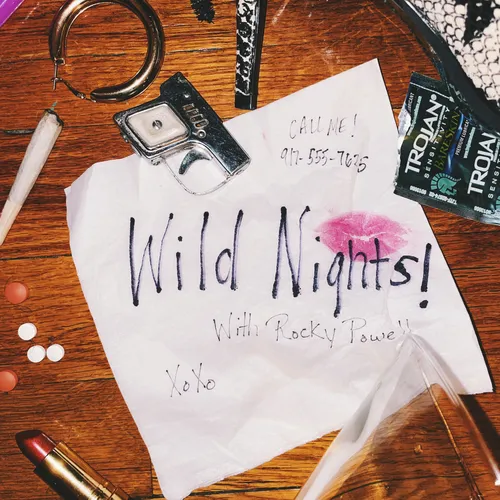 CALL ME!
917-555-7675
Wild Nights!
With Rocky Powell
XoXo
TROJAN
SENSITIVITY
BARESKIN
TROJAN